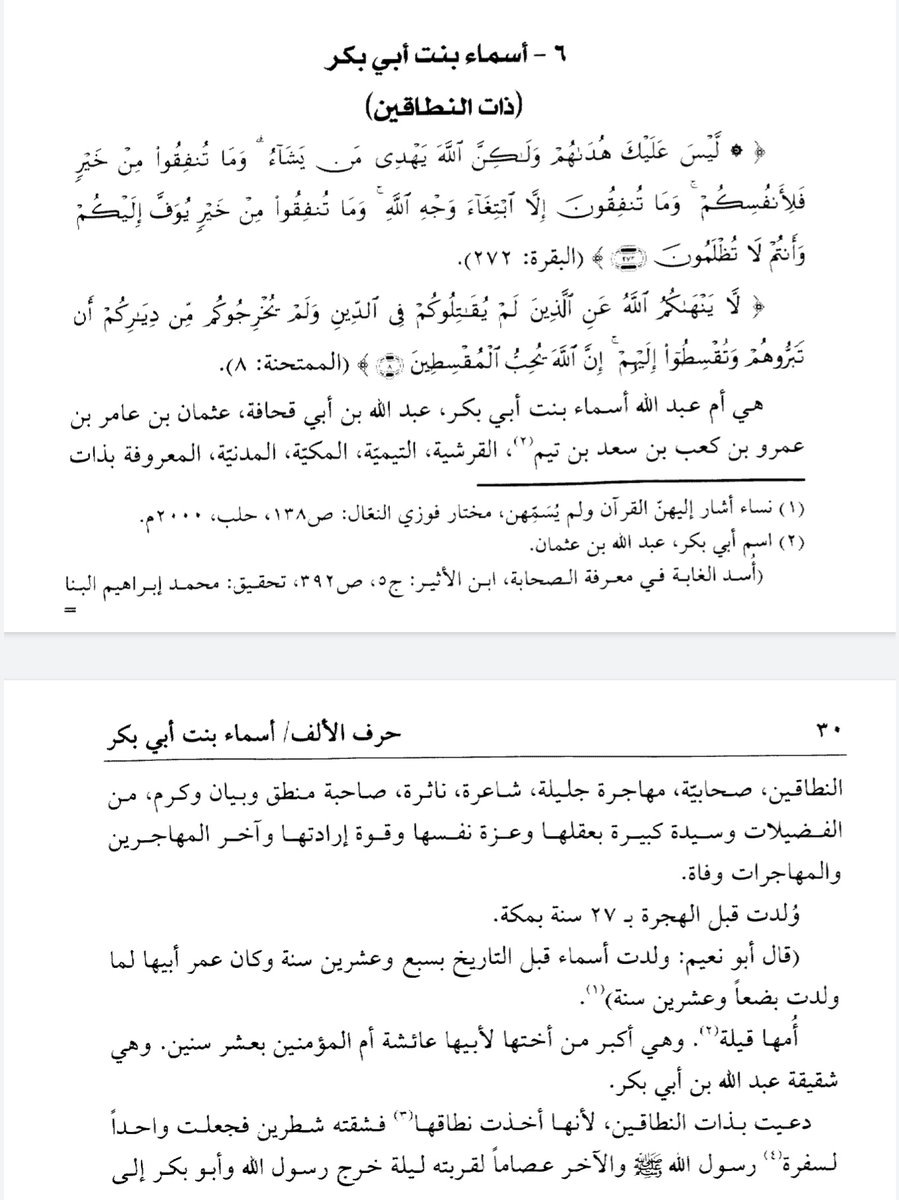 ٦ - أسماء بنت أبي بكر
(ذات النطاقين)
﴿ ۞ لَّيْسَ عَلَيْكَ هُدَىٰهُمْ وَلَٰكِنَّ ٱللَّهَ يَهْدِى مَن يَشَآءُ ۗ وَمَا تُنفِقُوا۟ مِنْ خَيْرٍ
فَلِأَنفُسِكُمْ ۚ وَمَا تُنفِقُونَ إِلَّا ٱبْتِغَآءَ وَجْهِ ٱللَّهِ ۚ وَمَا تُنفِقُوا۟ مِنْ خَيْرٍ يُوَفَّ إِلَيْكُمْ
وَأَنتُمْ لَا تُظْلَمُونَ ۝٢٧٢ ﴾ (البقرة: ٢٧٢).
﴿ لَّا يَنْهَىٰكُمُ ٱللَّهُ عَنِ ٱلَّذِينَ لَمْ يُقَٰتِلُوكُمْ فِى ٱلدِّينِ وَلَمْ يُخْرِجُوكُم مِّن دِيَٰرِكُمْ أَن
تَبَرُّوهُمْ وَتُقْسِطُوٓا۟ إِلَيْهِمْ ۚ إِنَّ ٱللَّهَ يُحِبُّ ٱلْمُقْسِطِينَ ۝٨ ﴾ (الممتحنة: ٨).
هي أم عبد الله أسماء بنت أبي بكر، عبد الله بن أبي قحافة، عثمان بن عامر بن
عمرو بن كعب بن سعد بن تيم(٢)، القرشية، التيميّة، المكيّة، المدنيّة، المعروفة بذات
(١) نساء أشار إليهنّ القرآن ولم يُسَمِّهن، مختار فوزي النعّال: ص١٣٨، حلب، ٢٠٠٠م.
(٢) اسم أبي بكر، عبد الله بن عثمان.
(أُسد الغابة في معرفة الصحابة، ابن الأثير: ج٥، ص٣٩٢، تحقيق: محمد إبراهيم البنا
=
٣٠ حرف الألف/ أسماء بنت أبي بكر
النطاقين، صحابيّة، مهاجرة جليلة، شاعرة، ناثرة، صاحبة منطق وبيان وكرم، من
الفضيلات وسيدة كبيرة بعقلها وعزة نفسها وقوة إرادتها وآخر المهاجرين
والمهاجرات وفاة.
وُلدت قبل الهجرة بـ ٢٧ سنة بمكة.
(قال أبو نعيم: ولدت أسماء قبل التاريخ بسبع وعشرين سنة وكان عمر أبيها لما
ولدت بضعاً وعشرين سنة)(١).
أُمها قيلة(٢). وهي أكبر من أختها لأبيها عائشة أم المؤمنين بعشر سنين. وهي
شقيقة عبد الله بن أبي بكر.
دعيت بذات النطاقين، لأنها أخذت نطاقها(٣) فشقته شطرين فجعلت واحداً
لسفرة(٤) رسول الله ﷺ والآخر عصاماً لقربته ليلة خرج رسول الله وأبو بكر إلى